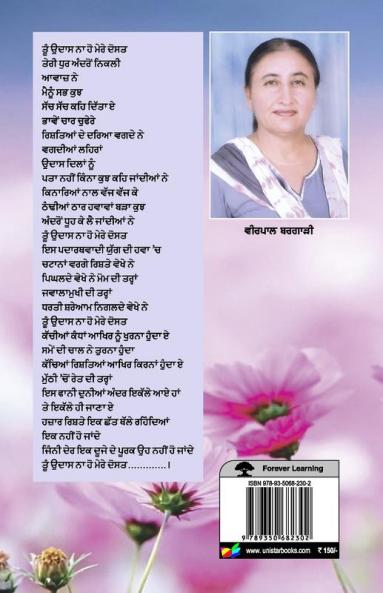 ਤੂੰ ਉਦਾਸ ਨਾ ਹੋ ਮੇਰੇ ਦੋਸਤ
ਤੇਰੀ ਧੁਰ ਅੰਦਰੋਂ ਨਿਕਲੀ
ਆਵਾਜ਼ ਨੇ
ਮੈਨੂੰ ਸਭ ਕੁਝ
ਸੱਚ ਸੱਚ ਕਹਿ ਦਿੱਤਾ ਏ
ਭਾਵੇਂ ਚਾਰ ਚੁਫੇਰੇ
ਰਿਸ਼ਤਿਆਂ ਦੇ ਦਰਿਆ ਵਗਦੇ ਨੇ
ਵਗਦੀਆਂ ਲਹਿਰਾਂ
ਉਦਾਸ ਦਿਲਾਂ ਨੂੰ
ਪਤਾ ਨਹੀਂ ਕਿੰਨਾ ਕੁਝ ਕਹਿ ਜਾਂਦੀਆਂ ਨੇ
ਕਿਨਾਰਿਆਂ ਨਾਲ ਵੱਜ ਵੱਜ ਕੇ
ਠੰਢੀਆਂ ਠਾਰ ਹਵਾਵਾਂ ਬੜਾ ਕੁਝ
ਅੰਦਰੋਂ ਧੂਹ ਕੇ ਲੈ ਜਾਂਦੀਆਂ ਨੇ
ਤੂੰ ਉਦਾਸ ਨਾ ਹੋ ਮੇਰੇ ਦੋਸਤ
ਇਸ ਪਦਾਰਥਵਾਦੀ ਯੁੱਗ ਦੀ ਹਵਾ 'ਚ
ਚਟਾਨਾਂ ਵਰਗੇ ਰਿਸ਼ਤੇ ਵੇਖੇ ਨੇ
ਪਿਘਲਦੇ ਵੇਖੇ ਨੇ ਮੋਮ ਦੀ ਤਰ੍ਹਾਂ
ਜਵਾਲਾਮੁਖੀ ਦੀ ਤਰ੍ਹਾਂ
ਧਰਤੀ ਸ਼ਰੇਆਮ ਨਿਗਲਦੇ ਵੇਖੇ ਨੇ
ਤੂੰ ਉਦਾਸ ਨਾ ਹੋ ਮੇਰੇ ਦੋਸਤ
ਕੱਚੀਆਂ ਕੰਧਾਂ ਆਖਿਰ ਨੂੰ ਖੁਰਨਾ ਹੁੰਦਾ ਏ
ਸਮੇਂ ਦੀ ਚਾਲ ਨੇ ਤੁਰਨਾ ਹੁੰਦਾ
ਕੱਚਿਆਂ ਰਿਸ਼ਤਿਆਂ ਆਖਿਰ ਕਿਰਨਾਂ ਹੁੰਦਾ ਏ
ਮੁੱਠੀ 'ਚੋਂ ਰੇਤ ਦੀ ਤਰ੍ਹਾਂ
ਇਸ ਫਾਨੀ ਦੁਨੀਆਂ ਅੰਦਰ ਇਕੱਲੇ ਆਏ ਹਾਂ
ਤੇ ਇਕੱਲੇ ਹੀ ਜਾਣਾ ਏ
ਹਜ਼ਾਰ ਰਿਸ਼ਤੇ ਇਕ ਛੱਤ ਥੱਲੇ ਰਹਿੰਦਿਆਂ
ਇਕ ਨਹੀਂ ਹੋ ਜਾਂਦੇ
ਜਿੰਨੀ ਦੇਰ ਇਕ ਦੂਜੇ ਦੇ ਪੂਰਕ ਉਹ ਨਹੀਂ ਹੋ ਜਾਂਦੇ
ਤੂੰ ਉਦਾਸ ਨਾ ਹੋ ਮੇਰੇ ਦੋਸਤ.............।
ਵੀਰਪਾਲ ਬਰਗਾੜੀ
Forever Learning
ISBN 978-93-5068-230-2
9 789350 682302
www.unistarbooks.com ₹ 150/-